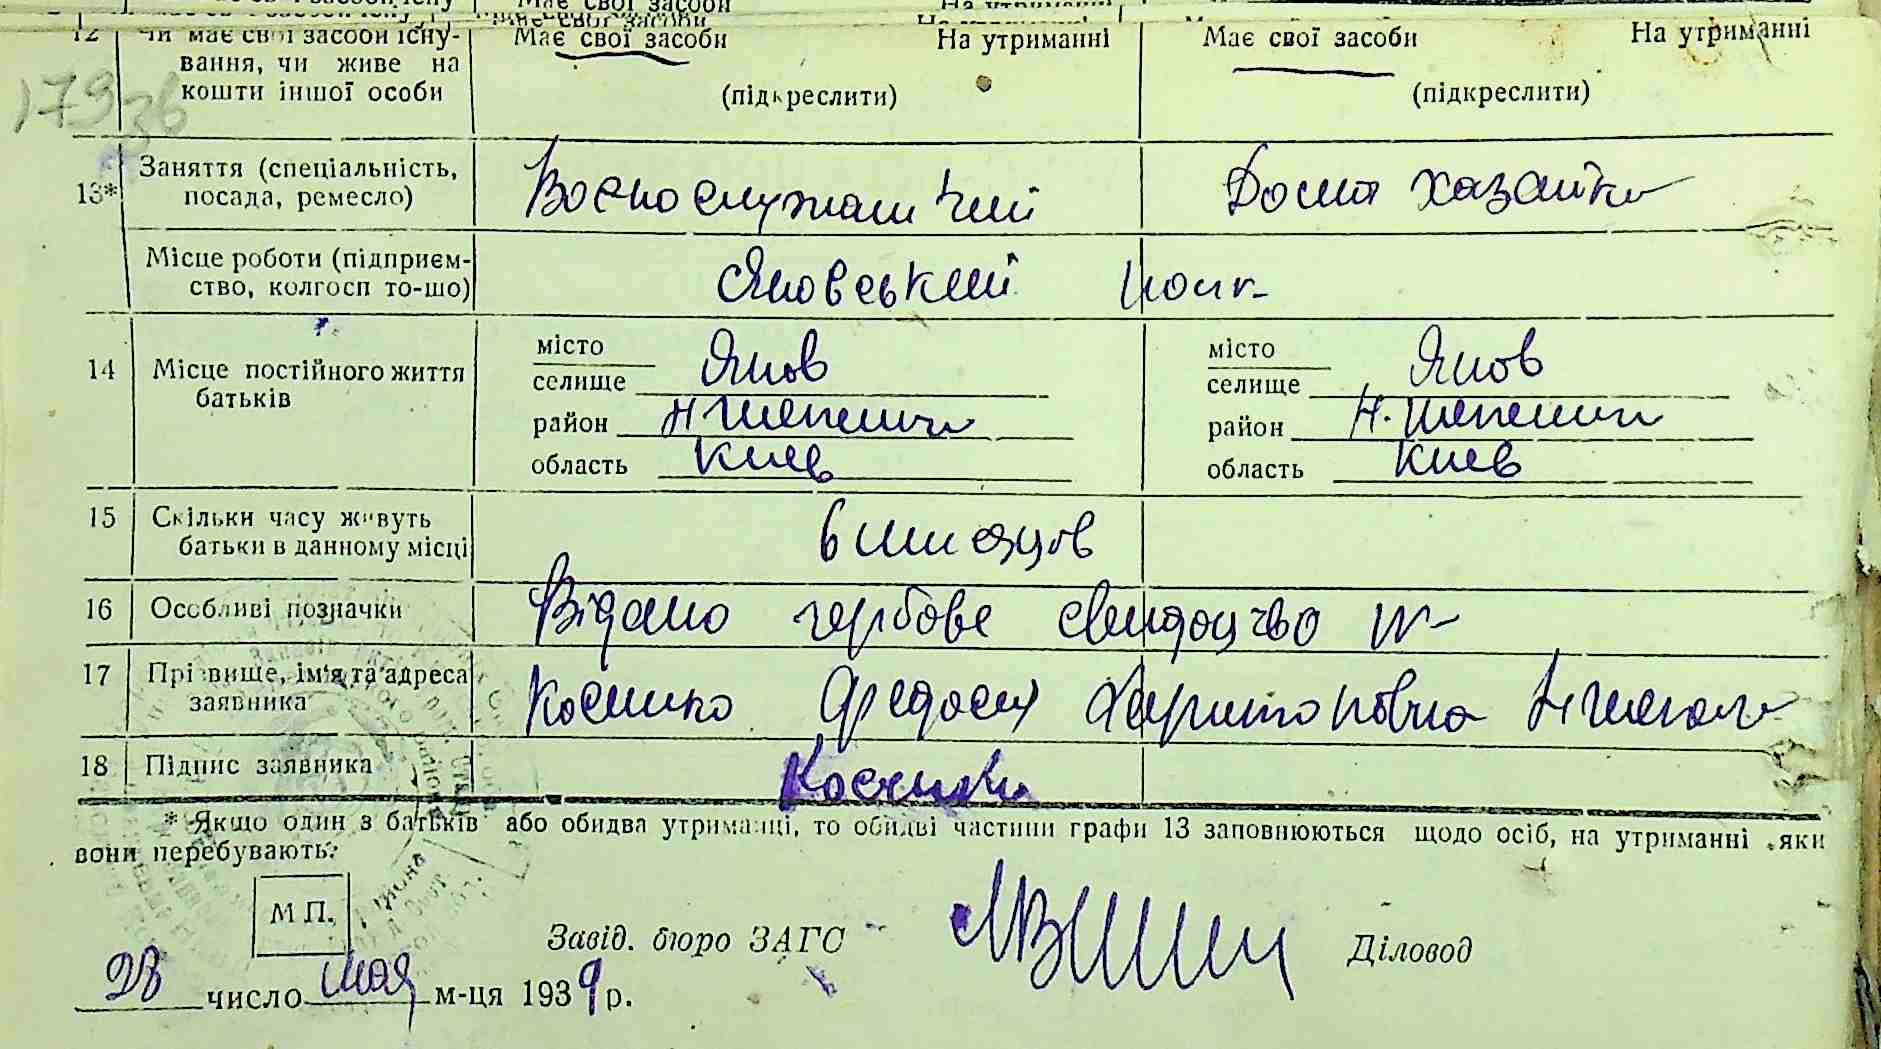 12 Чи має свої засоби існу- Має свої засоби На утриманні Має свої засоби На утриманні
вання, чи живе на
кошти іншої особи (підкреслити) (підкреслити)
179 36
13* Заняття (спеціальність, посада, ремесло) Воєнослужащий Домохазайка
Місце роботи (підприєм-
ство, колгосп то-що) Яновський полк
14 Місце постійного життя
батьків
місто Янов місто Янов
селище селище
район Н Шепеличи район Н. Шепеличи
область Киев область Киев
15 Скільки часу живуть
батьки в данному місці 6 місяцов
16 Особливі позначки Відано гербове свидоцтво №
17 Прізвище, ім'я та адреса
заявника Харитоновна
18 Підпис заявника
* Якщо один з батьків або обидва утриманці, то обидві частини графи 13 заповнюються щодо осіб, на утриманні яки
вони перебувають.
М П.
Завід. бюро ЗАГС Діловод
28 число мая м-ця 1939 р.